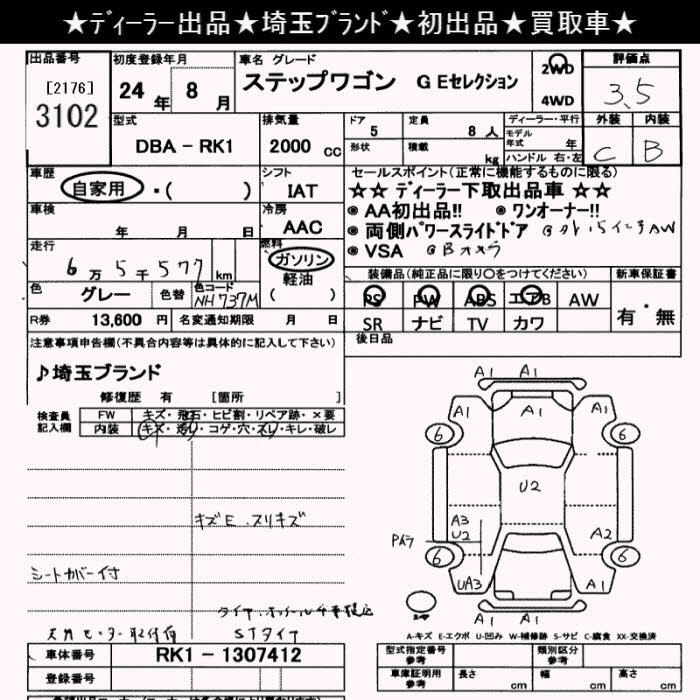 ★ディーラー出品★埼玉ブランド★初出品★買取車★
出品番号 初度登録年月 車名 グレード 評価点
[2176] 3102 24年 8月 ステップワゴン G Eセレクション 2WD 4WD 3.5
型式 排気量 ドア 定員 ディーラー・平行 外装 内装
DBA－RK1 2000cc 5 8人 モデル年式 年 C B
形状 積載 kg ハンドル 右・左
車歴 シフト セールスポイント(正常に機能するものに限る)
自家用・( ) IAT ☆☆ ディーラー下取出品車 ☆☆
車検 冷房 ◉AA初出品!! ◉ワンオーナー!!
年 月 日 AAC ◉両側パワースライドドア
走行 燃料 ◉VSA
6万5千577km ガソリン 軽油 ( )
装備品(純正品に限り○をつけてください) 新車保証書
色 グレー 色替 色コード NH737M
PS PW ABS エアB AW 有・無
R券 13,600円 名変通知期限 月 日
SR ナビ TV カワ
注意事項申告欄(不具合内容等は具体的に記入して下さい) 後日品
♪埼玉ブランド
修復歴 有 [箇所 ]
検査員記入欄 FW キズ・飛石・ヒビ割・リペア跡・×要
内装 キズ・汚レ・コゲ・穴・スレ・キレ・破レ
A1 A1
A1 A1 A1 A1
6 6
U2
A3
U2 A2
6 6
UA3 A1 A1
A1 A1
キズE.スリキズ
シートカバー付
STタイヤ
A-キズ E-エクボ U-凹み W-補修跡 S-サビ C-腐食 XX-交換済
車体番号 RK1－1307412
型式指定番号 参考 類別区分 参考
登録番号
車庫証明用 参考 長さ cm 幅 cm 高さ cm